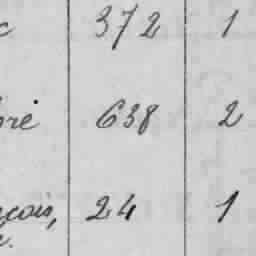 c 372 1
bré 638 2
nçois, 24 1